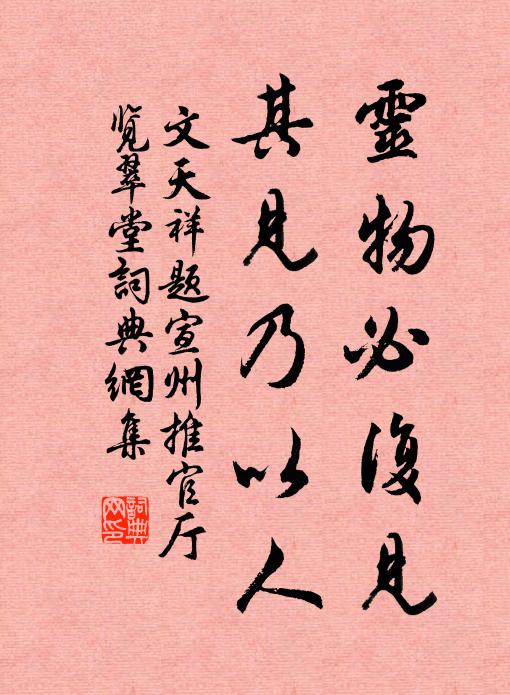 靈物必復見
其見乃以人
文天祥题宣州推官厅
览翠堂詞典網集
詞典
网印